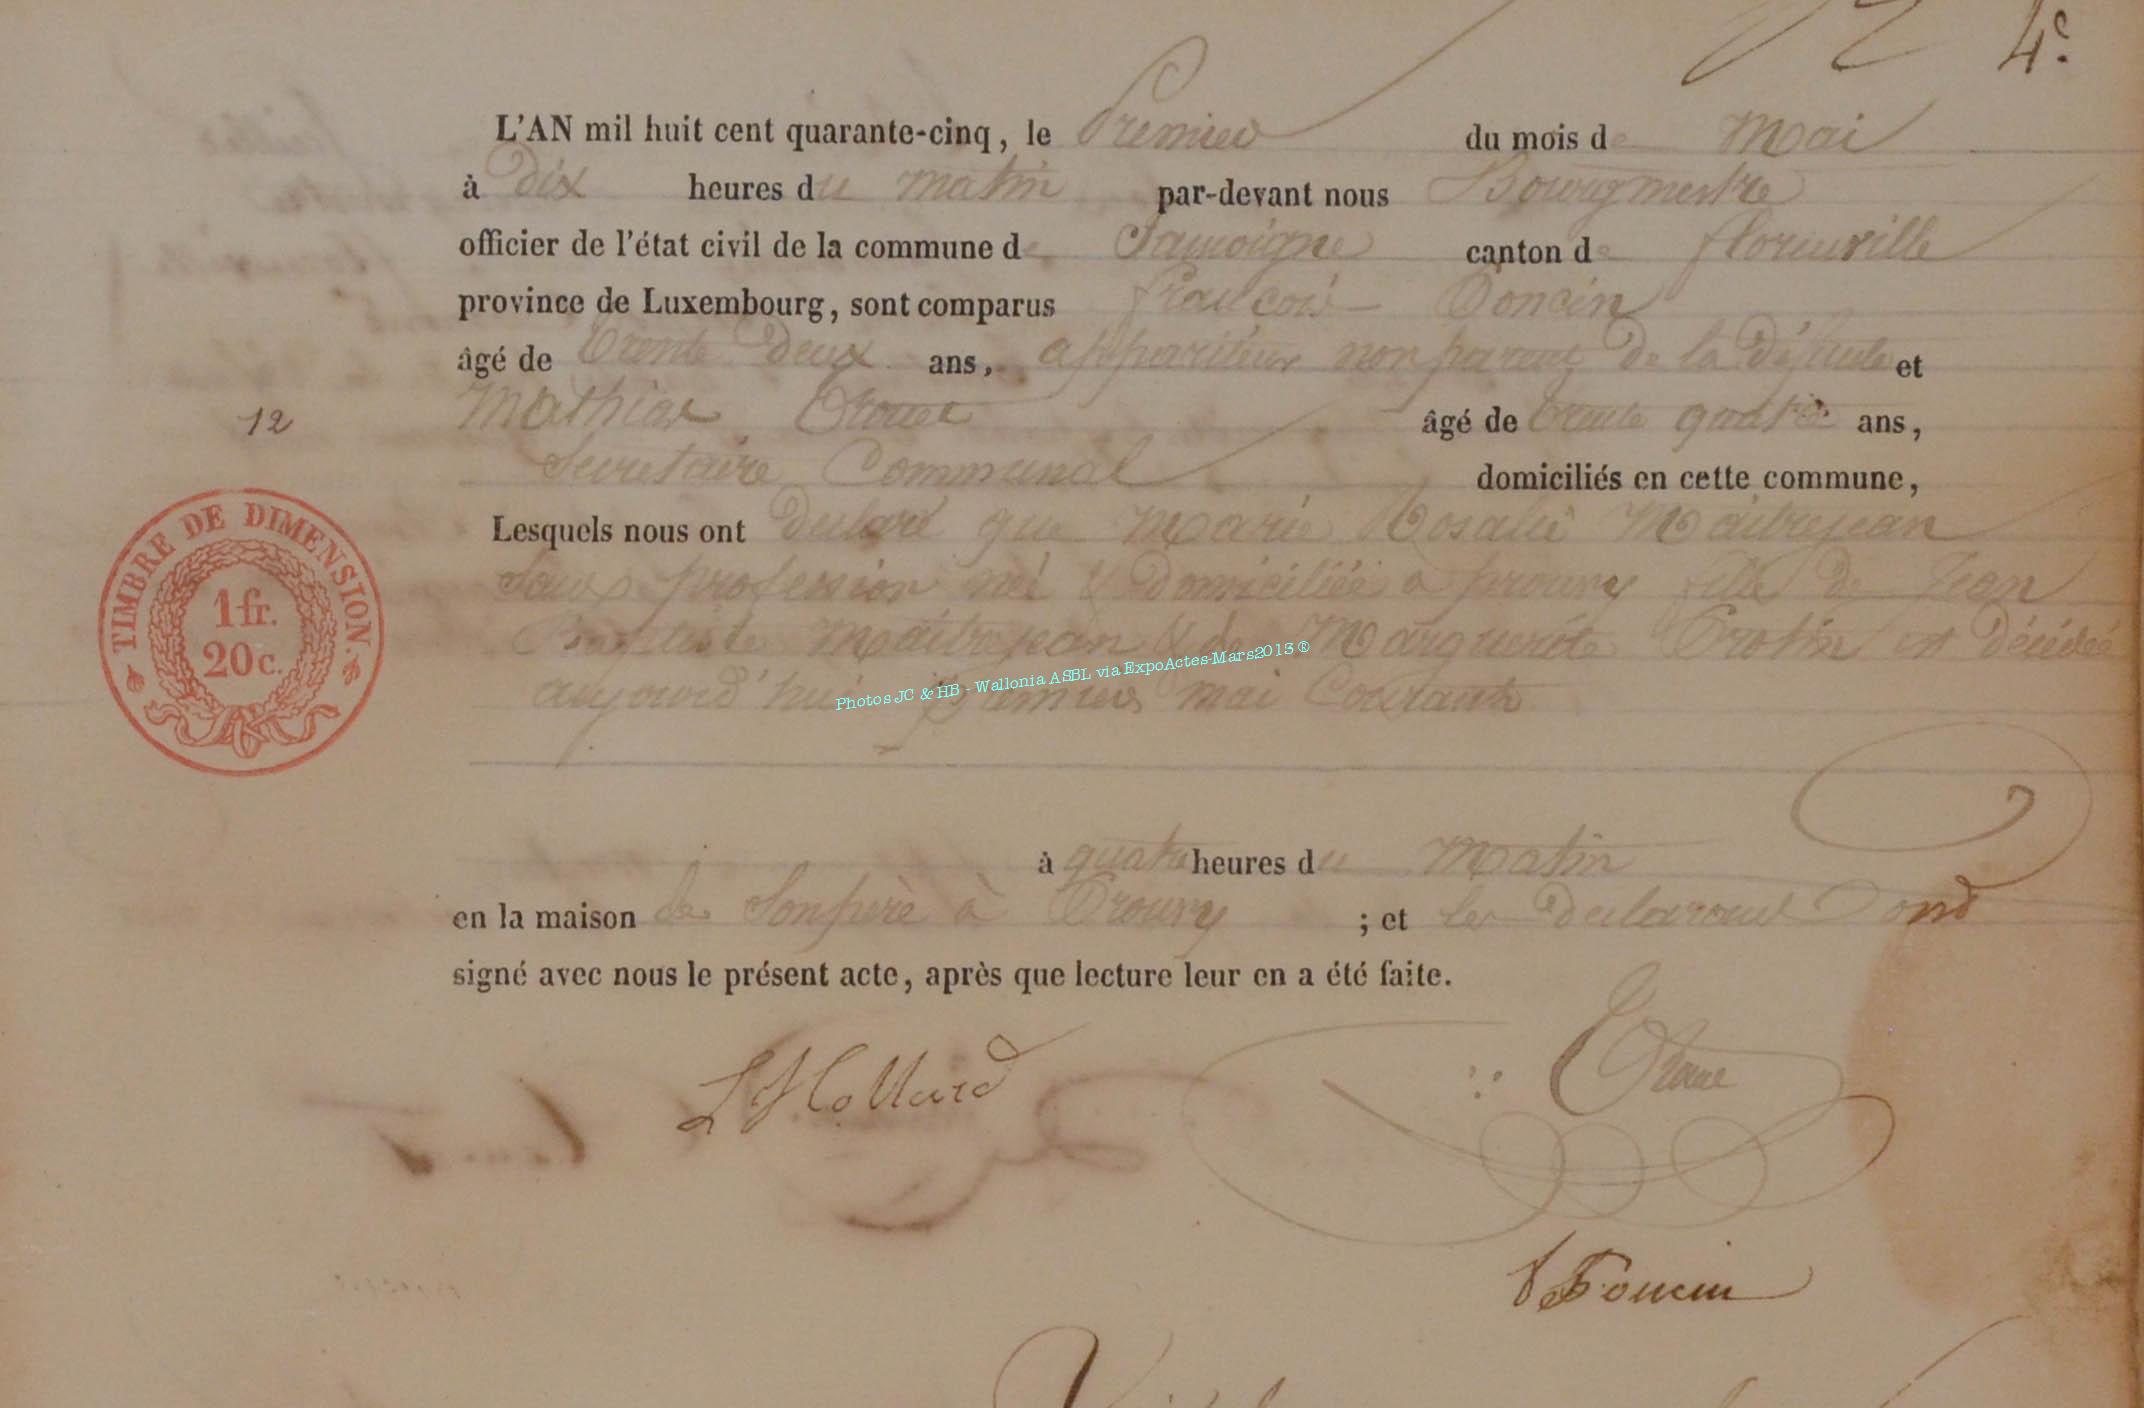 4e.
L'AN mil huit cent quarante-cinq, le Premier du mois de Mai
à Dix heures du matin par-devant nous Bourgmestre
officier de l'état civil de la commune de Jamoigne canton de florenville
province de Luxembourg, sont comparus françois Toncin
âgé de Trente Deux ans, appariteur non parent De la Défunte et
Mathias âgé de Trente quatre ans,
Secretaire Communal domiciliés en cette commune,
Lesquels nous ont Declaré que Marie Rosalie Maitrejean
Sans profession née & Domiciliée a prouvy fille de Jean
Baptiste Maitrejean & de Marguerite Protin est Décédée
aujourd'hui premier mai Courant
à quatre heures du Matin
en la maison de Son père à Prouvy ; et les Declarant ond
signé avec nous le présent acte, après que lecture leur en a été faite.
12
TIMBRE DE DIMENSION.
1 fr.
20 c.
Photos JC & HB - Wallonia ASBL via ExpoActes-Mars2013 ®
Hollard
Toncin